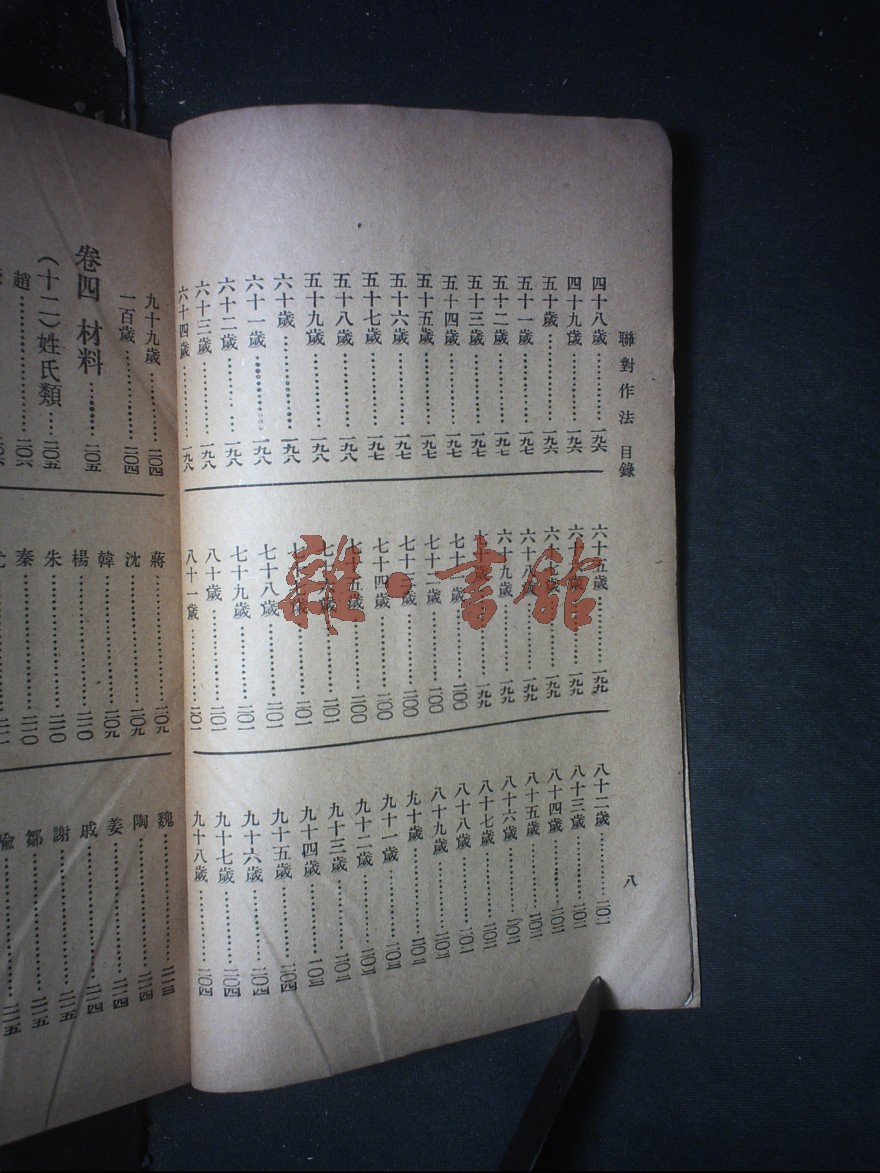 聯對作法 目錄
八
四十八歲…………一九六
四十九歲…………一九六
五十歲…………一九六
五十一歲…………一九七
五十二歲…………一九七
五十三歲…………一九七
五十四歲…………一九七
五十五歲…………一九七
五十六歲…………一九七
五十七歲…………一九七
五十八歲…………一九八
五十九歲…………一九八
六十歲…………一九八
六十一歲…………一九八
六十二歲…………一九八
六十三歲…………一九八
六十四歲…………一九八
六十五歲…………一九九
六十六歲…………一九九
六十七歲…………一九九
六十八歲…………一九九
六十九歲…………一九九
七十歲…………一九九
七十一歲…………二〇〇
七十二歲…………二〇〇
七十三歲…………二〇〇
七十四歲…………二〇〇
七十五歲…………二〇〇
七十六歲…………二〇一
七十七歲…………二〇一
七十八歲…………二〇一
七十九歲…………二〇一
八十歲…………二〇一
八十一歲…………二〇一
八十二歲…………二〇二
八十三歲…………二〇二
八十四歲…………二〇二
八十五歲…………二〇二
八十六歲…………二〇二
八十七歲…………二〇二
八十八歲…………二〇二
八十九歲…………二〇三
九十歲…………二〇三
九十一歲…………二〇三
九十二歲…………二〇三
九十三歲…………二〇三
九十四歲…………二〇三
九十五歲…………二〇四
九十六歲…………二〇四
九十七歲…………二〇四
九十八歲…………二〇四
九十九歲…………二〇四
一百歲…………二〇四
卷四 材料…………二〇五
(十二)姓氏類…………二〇五
趙…………二〇六
蔣…………二〇九
沈…………二〇九
韓…………二〇九
楊…………二一〇
朱…………二一〇
秦…………二一〇
尤
魏…………二一三
陶…………二一四
姜…………二一四
戚…………二一四
謝…………二一五
鄒…………二一五
喻…………二一五
雜·書舘